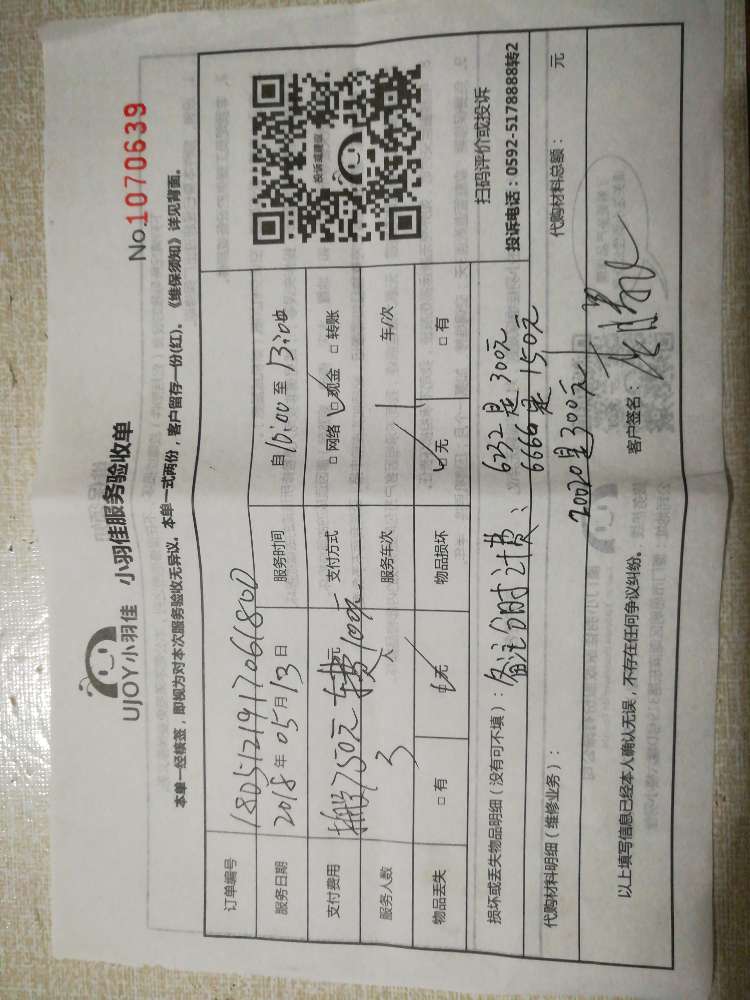 UJOY小羽佳 小羽佳服务验收单
No.1070639
本单一经核签，即视为对本次服务验收无异议。本单一式两份，客户留存一份(红)。《维保须知》详见背面。
订单编号 1805121917061800
服务日期 2018年05月13日 服务时间 自10:00至13:00
支付费用 750元 车费100元 支付方式 □网络 ☑现金 □转账
服务人数 3人 服务车次 1 车/次
物品丢失 □有 ☑无 物品损坏 ☑无 □有
投诉或建议
扫码评价或投诉
投诉电话：0592-5178888转2
损坏或丢失物品明细（没有可不填）：备注分时计费：6232是300元
6666是150元
20020是300元
代购材料明细（维修业务）： 代购材料总额： 元
以上填写信息已经本人确认无误，不存在任何争议纠纷。 客户签名：